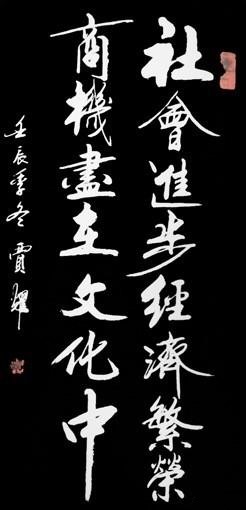 社會進步經濟繁榮
商機盡在文化中
壬辰季冬 賈耀